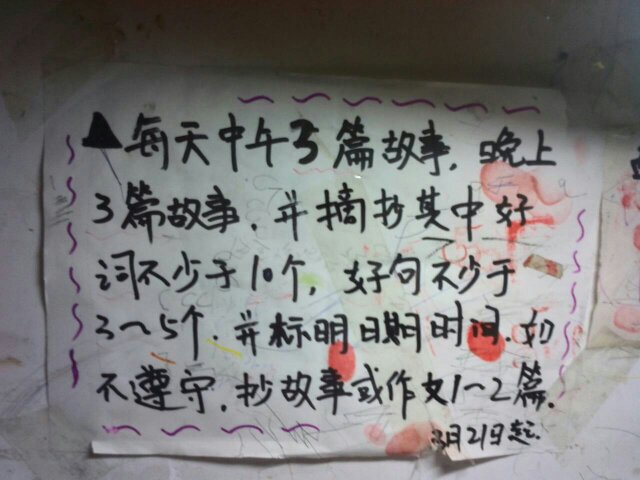 ▲每天中午3篇故事,晚上
3篇故事,并摘抄其中好
词不少于10个,好句不少于
3~5个.并标明日期时间.如
不遵守,抄故事或作文1~2篇.
3月21日起.